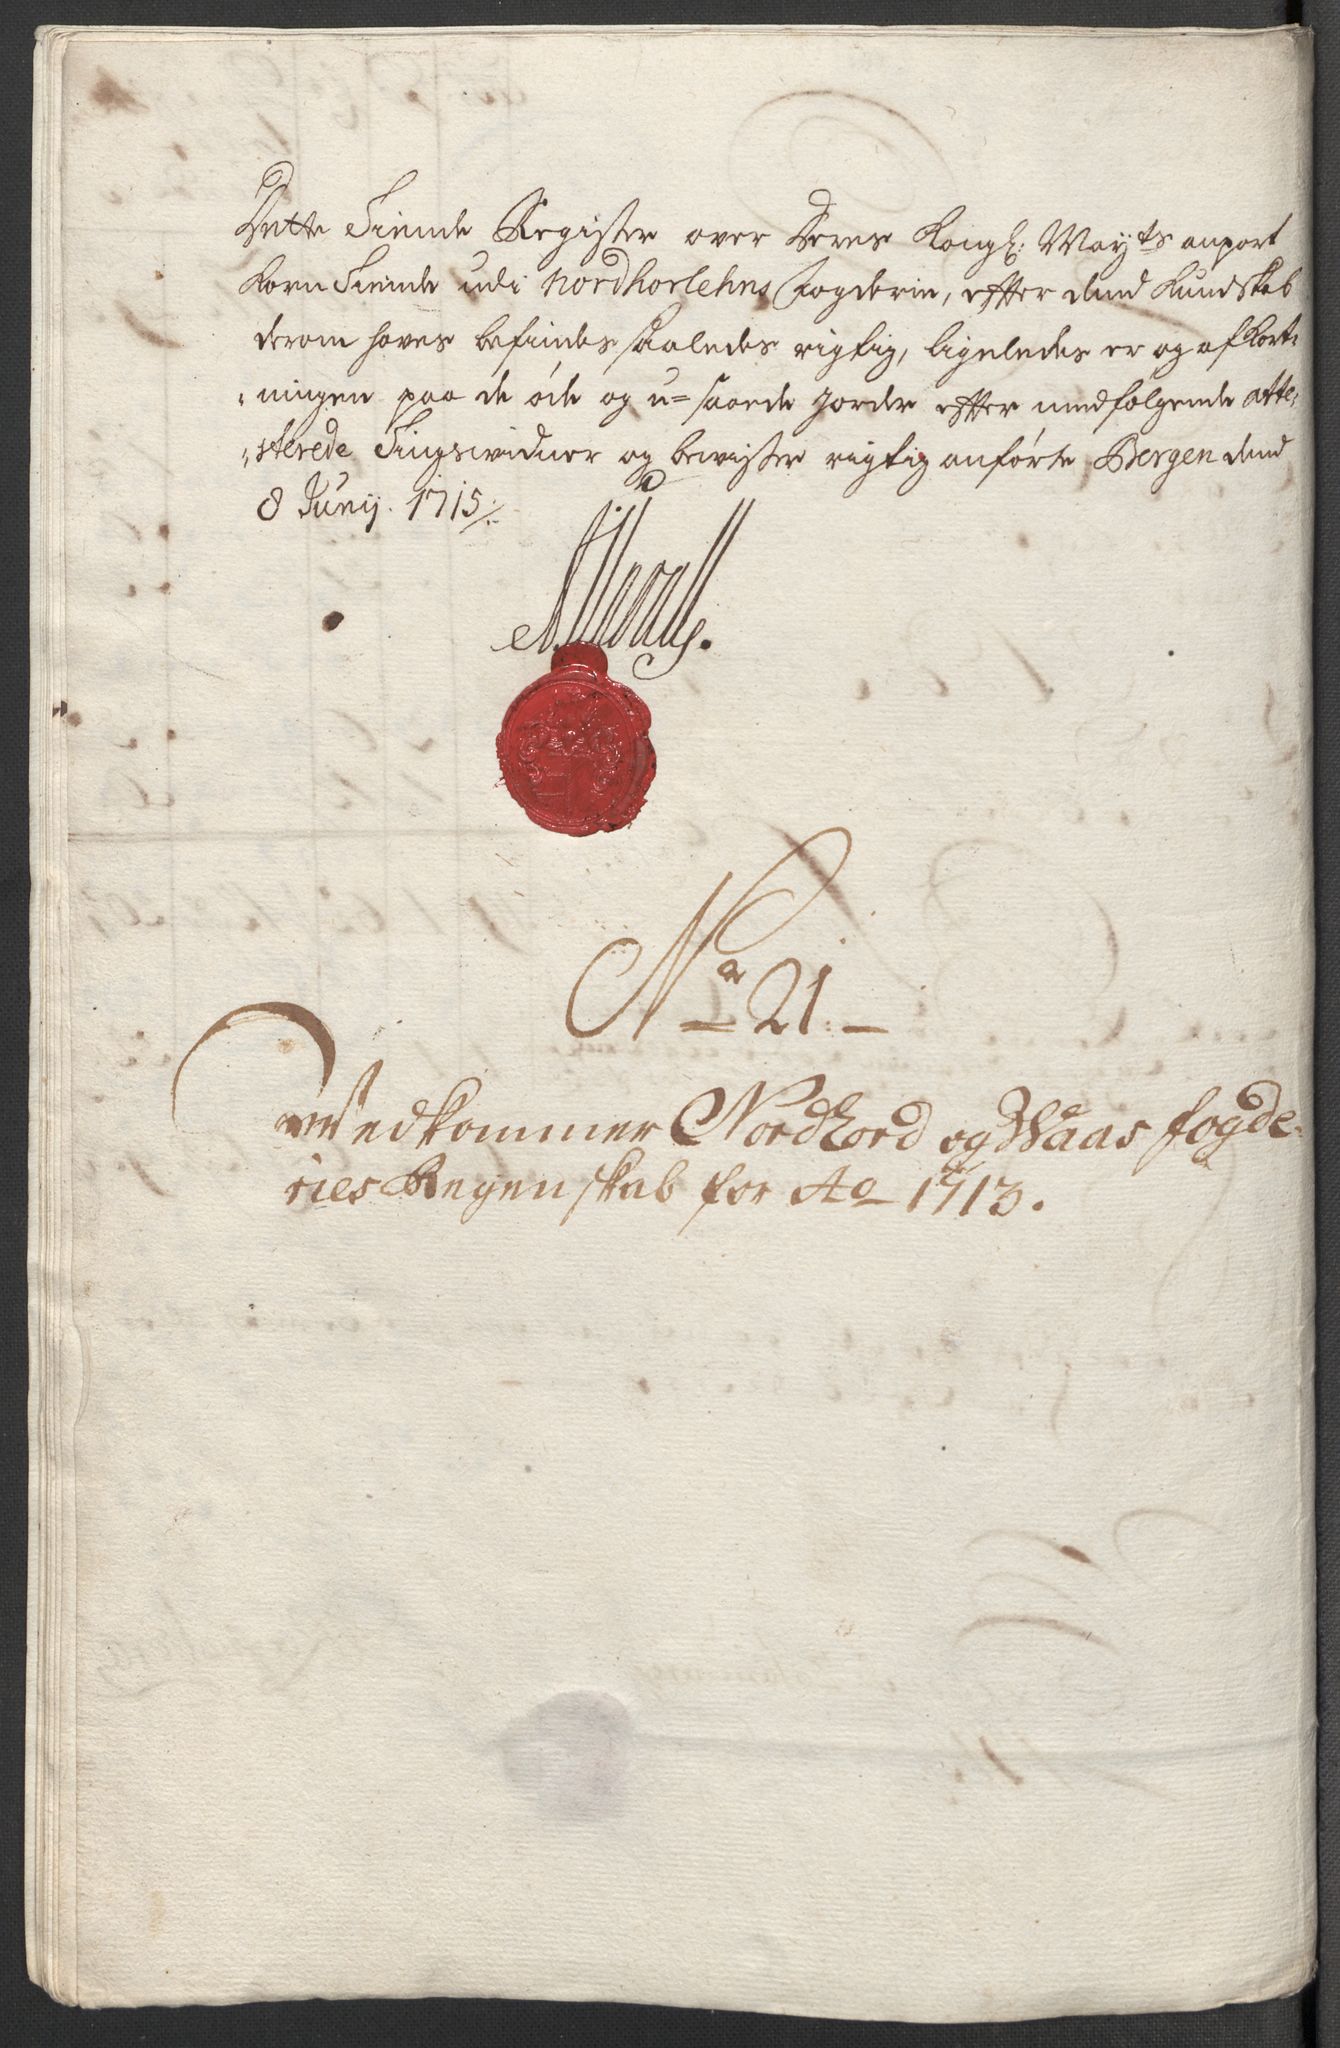 Dette Tiende Register over Deres Kongl: Mayts anpart
Korn Tiende udi Nordhorlehns Fogderie, effter dend Kundskab
derom haves befindes saaledes rigtig, ligeledes er og afkort-
ningen paa de øde og u-saaede Jorder effter medfølgende atte-
sterede Tingsvidner og beviser rigtig anførte Bergen dend
8 Junij. 1715
Nr 21.
Vedkommer Nordhord og Waas fogde-
ries Regenskab for Ao 1713.